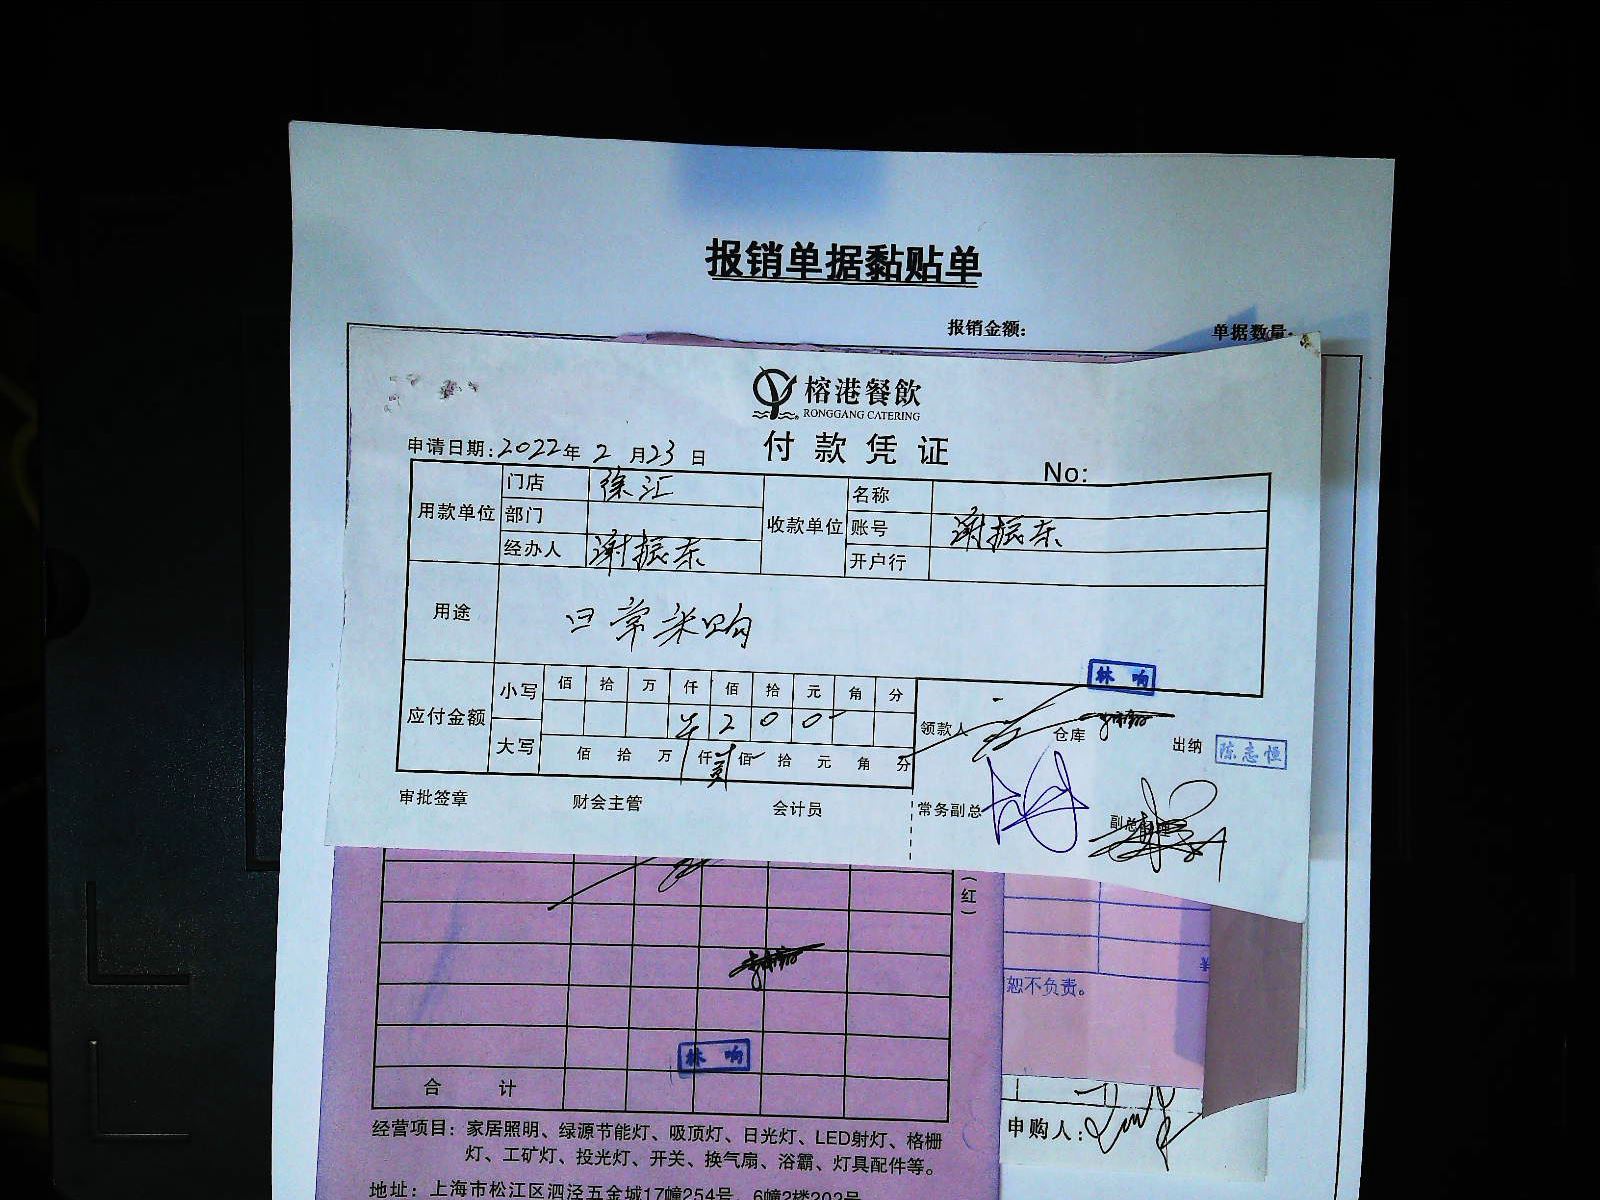 报销单据黏贴单
报销金额：
单据数量：
榕港餐飲
RONGGANG CATERING
付款凭证
申请日期：2022年 2 月 23 日
No:
用款单位
门店 徐汇
部门
经办人 谢振东
收款单位
名称
账号 谢振东
开户行
用途 日常采购
应付金额
小写 佰 拾 万 仟 佰 拾 元 角 分
¥ 2 0 0 -
大写 佰 拾 万 仟 贰 佰 拾 元 角 分
林响
领款人
仓库
出纳 陈志恒
审批签章
财会主管
会计员
常务副总
副总经理
（红）
林响
合 计
恕不负责。
申购人：
经营项目：家居照明、绿源节能灯、吸顶灯、日光灯、LED射灯、格栅
灯、工矿灯、投光灯、开关、换气扇、浴霸、灯具配件等。
地址：上海市松江区泗泾五金城17幢254号，6幢2楼202号